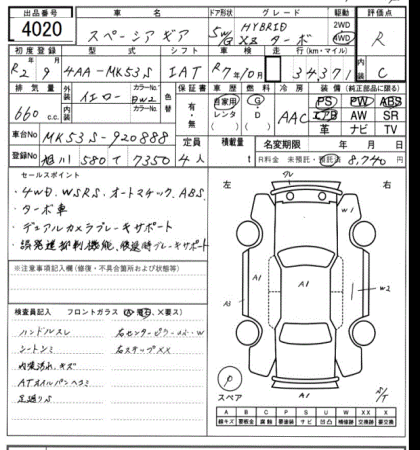 出品番号 車名 ドア形状 グレード 駆動 評価点
4020 スペーシア ギア 5W/G HYBRID XZ ターボ 2WD 4WD R
初度登録 型式 シフト 車検 走行(km・マイル) 内装
R2 9 4AA-MK53S IAT R7年10月 34,371 C
排気量 外装 カラーNo. 色替 保証書 車歴 燃料 冷房 装備(純正部品に限る)
660 c.c. イエロー 有・無 自家用 レンタ G D AAC PS PW ABS
内装 カラーNo. エアB AW SR
革 ナビ TV
車台No MK53S-920888 定員 積載量 名変期限 年 月 日
登録No 旭川 580 て 7350 4人 t R料金 未預託・預託済 8,740 円
セールスポイント
・4WD、WSRS、オートマチック、ABS
・ターボ車
・デュアルカメラブレーキサポート
・誤発進抑制機能、後退時ブレーキサポート
※注意事項記入欄(修復・不具合箇所および状態)
検査員記入 フロントガラス(A・飛石、X要ス)
ハンドルスレ
シートシミ 右ステップXX
内装汚れ、キズ
ATオイルパンヘコミ
左 右
グレ
W1
A1
A1
A3
W2
A1
スペア
A B C P S U G Y W X XX
線キズ 要板金 腐蝕 要塗装 サビ 凹凸 補修跡 要交換 交換済